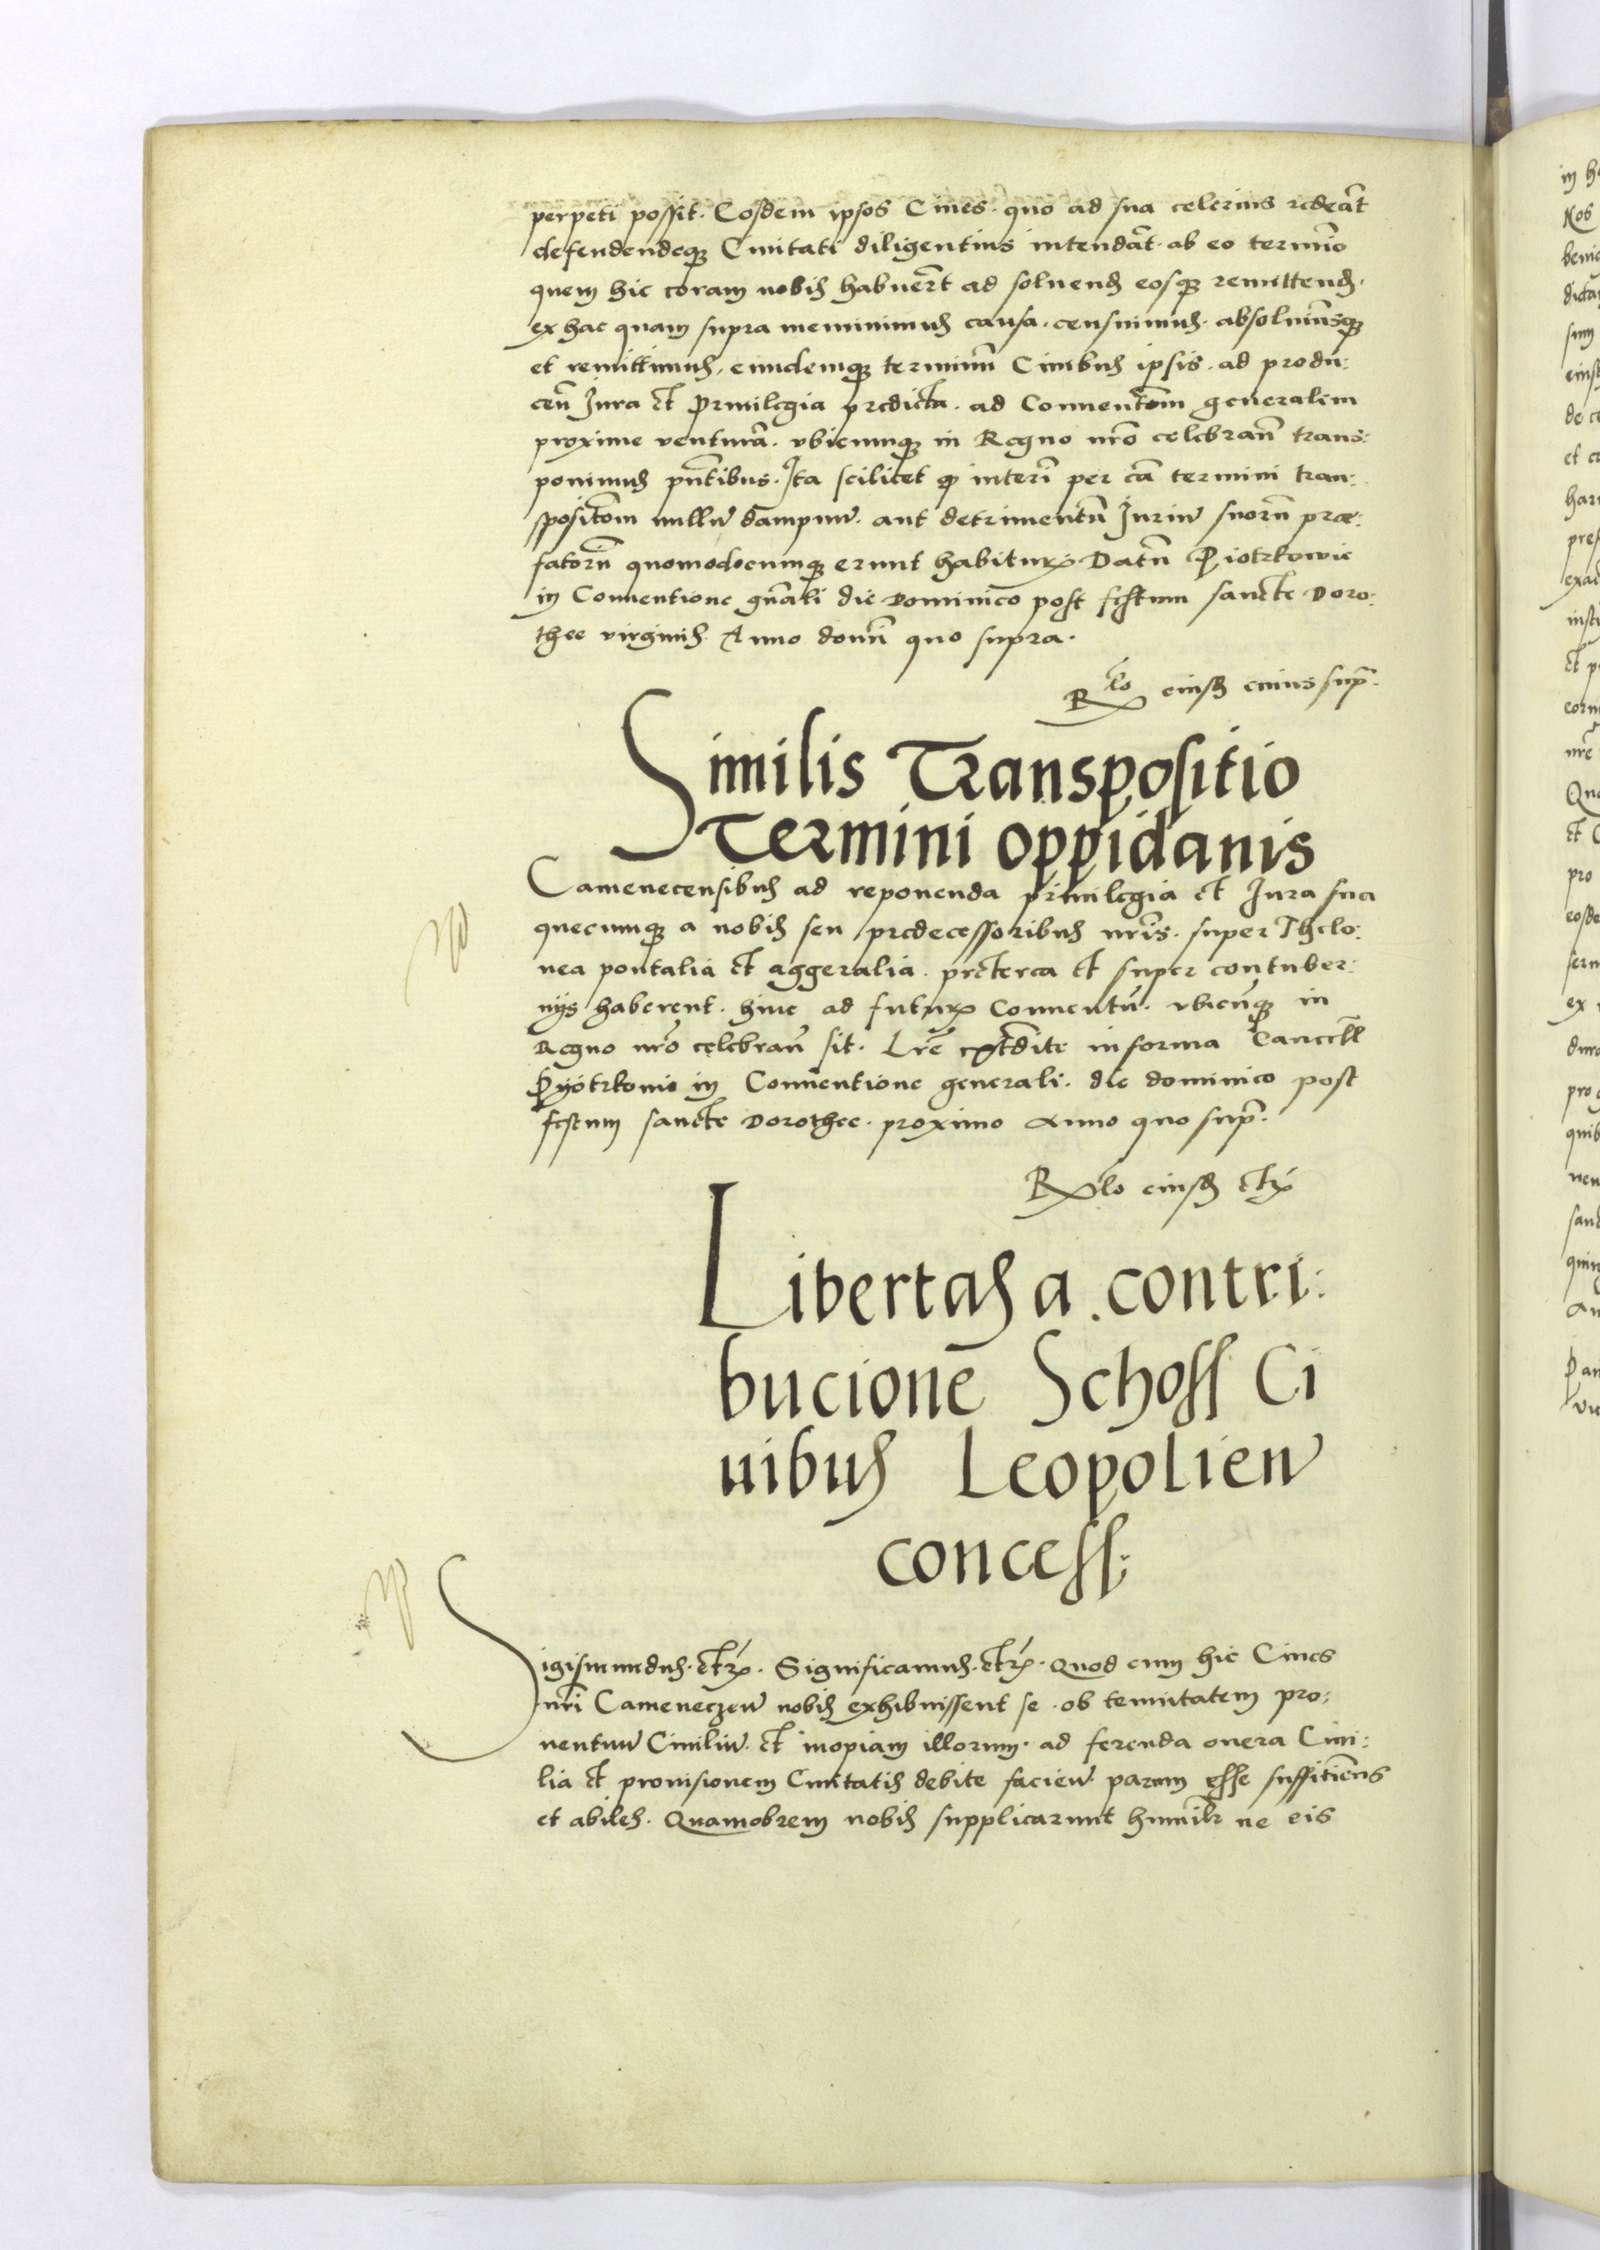 perpeti possit. Eosdem ipsos Ciues. quo ad sua celerius redeāt
defendendeqꝫ Ciuitati diligentius intendāt. ab eo termīo
quem hic coram nobis habuert̄ ad soluend eosqꝫ remittend.
ex hac quam supra meminimus causa. censuimus. absoluimusqꝫ
et remittimus, eundemqꝫ terminū Ciuibus ipsis. ad produ:
ceñ Jura et Priuilegia predicta. ad Conuentōm generalem
proxime venturā. vbicumqꝫ in Regno nrō celebrañ trans:
ponimus pñtibus. Ita scilicet ꝙ interī per eā termini tran:
spositōm nullū dampnū. aut detrimentū Juriū suorū prae:
fatorū quomodocumqꝫ erunt habituri. Datū Piotrkowie
in Conuentione gñali die Dominico post festum sancte Doro:
thee virginis Anno domī quo supra.
Rlo eiusd cuius sup̄.
Similis Transpositio
Termini oppidanis
Camenecensibus ad reponenda priuilegia et Jura sua
quecumqꝫ a nobis seu predecessoribus nrīs. super Thelo:
nea pontalia et aggeralia. preterea et super contuber:
nijs haberent. hinc ad futurꝫ Conuentū. vbicūqꝫ in
Regno nrō celebrañ sit. Lrē expedite in forma Cancell
Pyotrkouie in Conuentione generali. die dominico post
festum sancte Dorothee. proximo Anno quo sup̄.
Rlo eiusd etc
Libertas a contri:
bucione Schoss Ci
uibus Leopolien
concess:
Sigismundus. etc. Significamus. etc. Quod cum hic Ciues
nrī Cameneczen nobis exhibuissent se. ob tenuitatem pro:
uentuū Ciuiliū. et inopiam illorum. ad ferenda onera Ciui:
lia et prouisionem Ciuitatis debite facien. parum esse sufficiens
et abiles. Quamobrem nobis supplicarunt humilr̄ ne eis
in h
Nos
dicta
sum
de c
et c
pres
exac
insti
et p
nrē
et C
pro
eosde
ex
pro
quib
nen
sanc